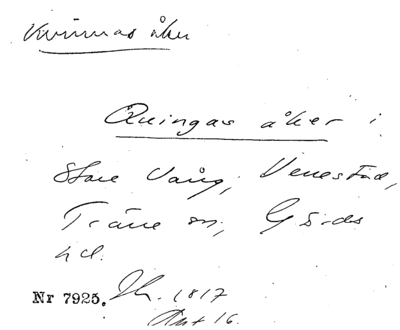 Kvinnas åker
Quingas åker i
Stora Vång, Venestad,
Träne sn, Gärds
hd.
Nr 7925. 1817
Akt 16.